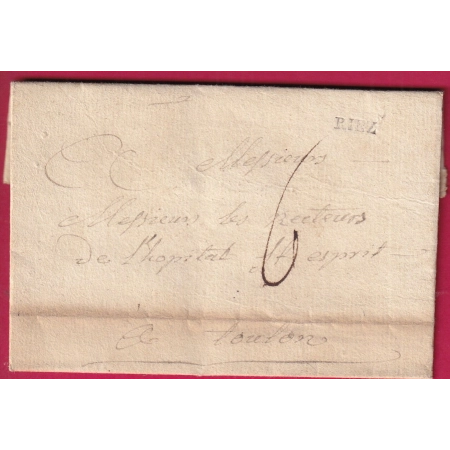 RIEZ
A Messieurs
Messieurs les recteurs
de l'hopital St esprit
6
A toulon